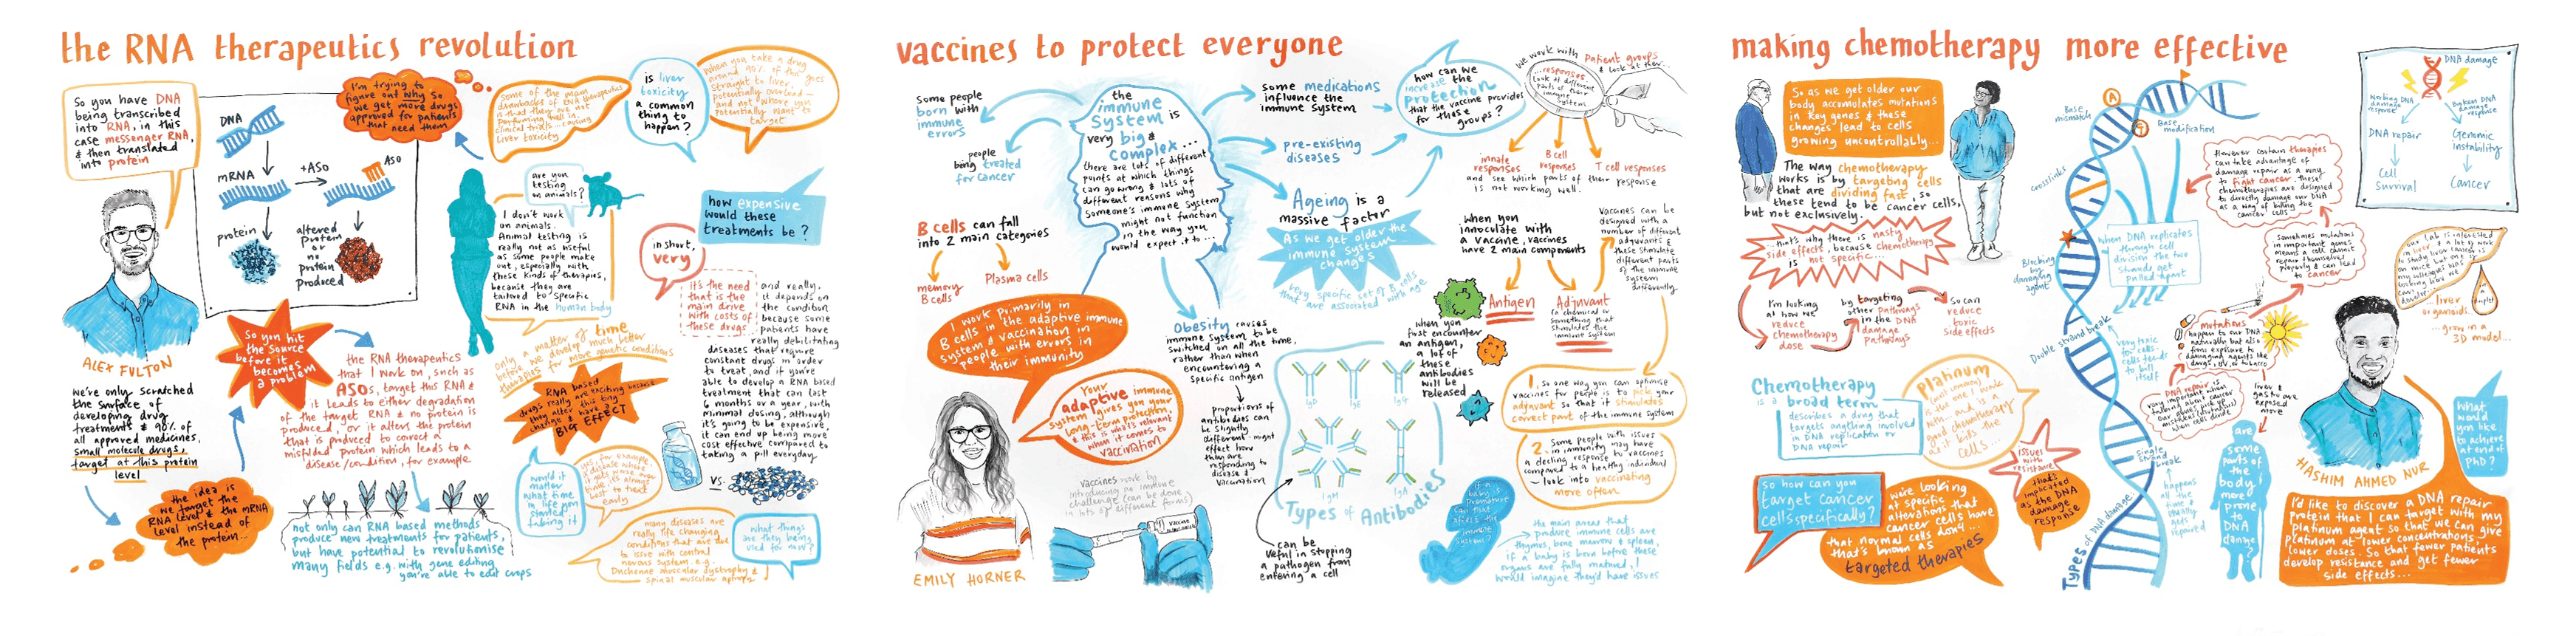 the RNA therapeutics revolution
So you have DNA
being transcribed
into RNA, in this
case messenger RNA,
& then translated
into protein
DNA
mRNA
+ASO
ASO
protein
altered
protein
or no
protein
produced
I'm trying to
figure out why so
we get more drugs
approved for patients
that need them
some of the main
drawbacks of RNA therapeutics
is that they are not
performing well in
clinical trials... causing
liver toxicity
is liver
toxicity
a common
thing to
happen?
when you take a drug
around 90% of this goes
straight to liver,
potentially overload
and not where you
potentially want to
target
ALEX FULTON
we've only scratched
the surface of
developing drug
treatments & 90% of
all approved medicines,
small molecule drugs,
target at this protein
level
the idea is
we target the
RNA level & the mRNA
level instead of
the protein...
So you hit
the source
before it
becomes
a problem
the RNA therapeutics
that I work on, such as
ASOs, target this RNA &
it leads to either degradation
of the target RNA & no protein is
produced, or it alters the protein
that is produced to correct a
misfolded protein which leads to a
disease/condition, for example
not only can RNA based methods
produce new treatments for patients,
but have potential to revolutionise
many fields e.g. with gene editing
you're able to edit crops
are you
testing
on animals?
I don't work
on animals.
Animal testing is
really not as useful
as some people make
out, especially with
these kinds of therapies,
because they are
tailored to specific
RNA in the human body
only a matter of time
before we develop much better
therapies for more genetic conditions
RNA based
drugs really are exciting because
they alter this tiny
change & have a
BIG EFFECT
how expensive
would these
treatments be?
in short,
very
it's the need
that is the
main drive
with costs of
these drugs
and really,
it depends on
the condition
because some
patients have
really debilitating
diseases that require
constant drugs in order
to treat, and if you're
able to develop a RNA based
treatment that can last
6 months or a year, with
minimal dosing, although
it's going to be expensive,
it can end up being more
cost effective compared to
taking a pill everyday
vs.
would it
matter
what time
in life you
started
taking it
yes, for example,
a disease where
it gets worse over
time, it's always
best to treat
early
many diseases are
really life changing
conditions that are due
to issue with central
nervous system e.g.
Duchenne muscular dystrophy &
spinal muscular atrophy
what things
are they being
used for now?
vaccines to protect everyone
Some people
born with
immune
errors
people
being treated
for cancer
the
immune
system is
very big &
complex...
there are lots of different
points at which things
can go wrong & lots of
different reasons why
someone's immune system
might not function
in the way you
would expect it to...
some medications
influence the
immune system
pre-existing
diseases
Ageing is a
massive factor
As we get older the
immune system
changes
very specific set of B cells
that are associated with age
how can we
increase the
protection
that the vaccine provides
for these
groups?
we work with patient groups
& look at their...
...responses.
look at different
parts of their
immune
system
innate
responses
B cell
responses
T cell responses
and see which parts of their response
is not working well.
B cells can fall
into 2 main categories
memory
B cells
Plasma cells
I work primarily in
B cells in the adaptive immune
system & vaccination in
people with errors in
their immunity
Your
adaptive immune
system gives you your
long-term protection,
& this is what's relevant
when it comes to
vaccination
EMILY HORNER
vaccines work by
introducing an immune
challenge (can be done
in lots of different forms)
VACCINE
Obesity causes
immune system to be
switched on all the time,
rather than when
encountering a
specific antigen
proportions of
antibodies can
be slightly
different - might
effect how
they are
responding to
disease &
vaccination
When you
innoculate with
a vaccine, vaccines
have 2 main components
Antigen
Adjuvant
(a chemical or
something that
stimulates the
immune system)
vaccines can be
designed with a
number of different
adjuvants &
these stimulate
different parts
of the immune
system
differently
when you
first encounter
an antigen,
a lot of
these
antibodies
will be
released
IgD
IgE
IgG
IgM
IgA
Types of Antibodies
can be
useful in stopping
a pathogen from
entering a cell
1. so one way you can optimise
vaccines for people is to pick your
adjuvant so that it stimulates
correct part of the immune system
2. Some people with issues
in immunity may have
a declining response to vaccines
compared to a healthy individual
- look into vaccinating
more often
if a
baby is
premature
can that
affect the
immune
system?
the main areas that
produce immune cells are
thymus, bone marrow & spleen,
if a baby is born before these
organs are fully matured, I
would imagine they'd have issues
making chemotherapy more effective
So as we get older our
body accumulates mutations
in key genes & these
changes lead to cells
growing uncontrollably...
The way chemotherapy
works is by targeting cells
that are dividing fast, so
these tend to be cancer cells,
but not exclusively.
...that's why there is nasty
side effects, because chemotherapy
is not specific...
I'm looking
at how we
reduce
chemotherapy
dose
by targeting
other pathways
in the DNA
damage
pathways
So can
reduce
toxic
side effects
Chemotherapy
is a broad term
describes a drug that
targets anything involved
in DNA replication or
DNA repair
Platinum
is the one I work
with and is a
good chemotherapy
as it kills the
cells...
So how can you
target cancer
cells specifically?
we're looking
at specific
alterations that
cancer cells have
that normal cells don't...
that's known as
targeted therapies
issues
with
resistance
that's
implicated
as the DNA
damage
response
Base
mismatch
Base
modification
crosslinks
Blocking
by
damaging
agent
Double strand break
Single
strand
break
Types of DNA damage
when DNA replicates
through cell
division the two
strands get
pulled apart
very toxic
for cells.
cells tends
to kill
itself
happens
all the
time &
usually
gets
repaired
However certain therapies
can take advantage of
damage repair as a way
to fight cancer. these
chemotherapies are designed
to directly damage our DNA
as a way of killing the
cancer cells
Sometimes mutations
in important genes
means a cell cannot
repair themselves
properly & can lead
to cancer
mutations
happen to our DNA
naturally but also
from exposure to
damaging agents like
drugs, UV, or tobacco
DNA repair is
very important when
talking about cancer
liver &
gastro are
exposed
more
are
some
parts of
the
body
more
prone
to
DNA
damage?
DNA damage
Working DNA
damage
response
Broken DNA
damage
response
DNA repair
Genomic
instability
Cell
Survival
Cancer
liver
organoids
...grow in a
3D model...
HASHIM AHMED NUR
What
would
you like
to achieve
at end of
PhD?
I'd like to discover a DNA repair
protein that I can target with my
platinum agent so that we can give
platinum at lower concentrations,
lower doses. So that fewer patients
develop resistance and get fewer
side effects...